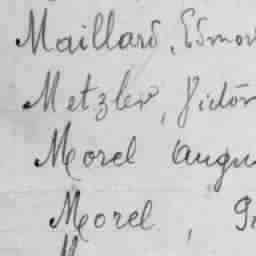 Maillard, Edmon
Metzler, Victor
Morel Augu
Morel,